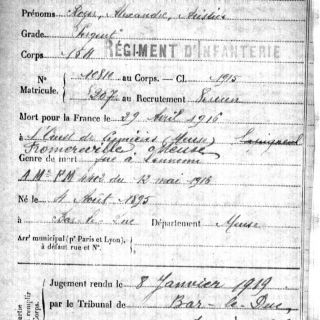 Prénoms Roger, Alexandre,
Grade Sergent
Corps 154 RÉGIMENT D'INFANTERIE
N° 10810 au Corps. — Cl. 1915
Matricule. 207 au Recrutement
Mort pour la France le 29 Avril 1916
à l'Ouest de Cumières (Meuse)
Fromeréville, Meuse
Genre de mort tué à l'ennemi
du 12 mai 1916
Né le 4 Août 1895
à Bar-le-Duc Département Meuse
Arr' municipal (p' Paris et Lyon),
à défaut rue et N°.
Jugement rendu le 8 Janvier 1919
par le Tribunal de Bar-le-Duc,
partie
remplir
Corps.